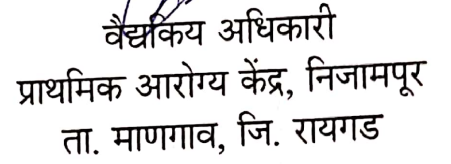 वैद्यकिय अधिकारी
प्राथमिक आरोग्य केंद्र, निजामपूर
ता. माणगाव, जि. रायगड